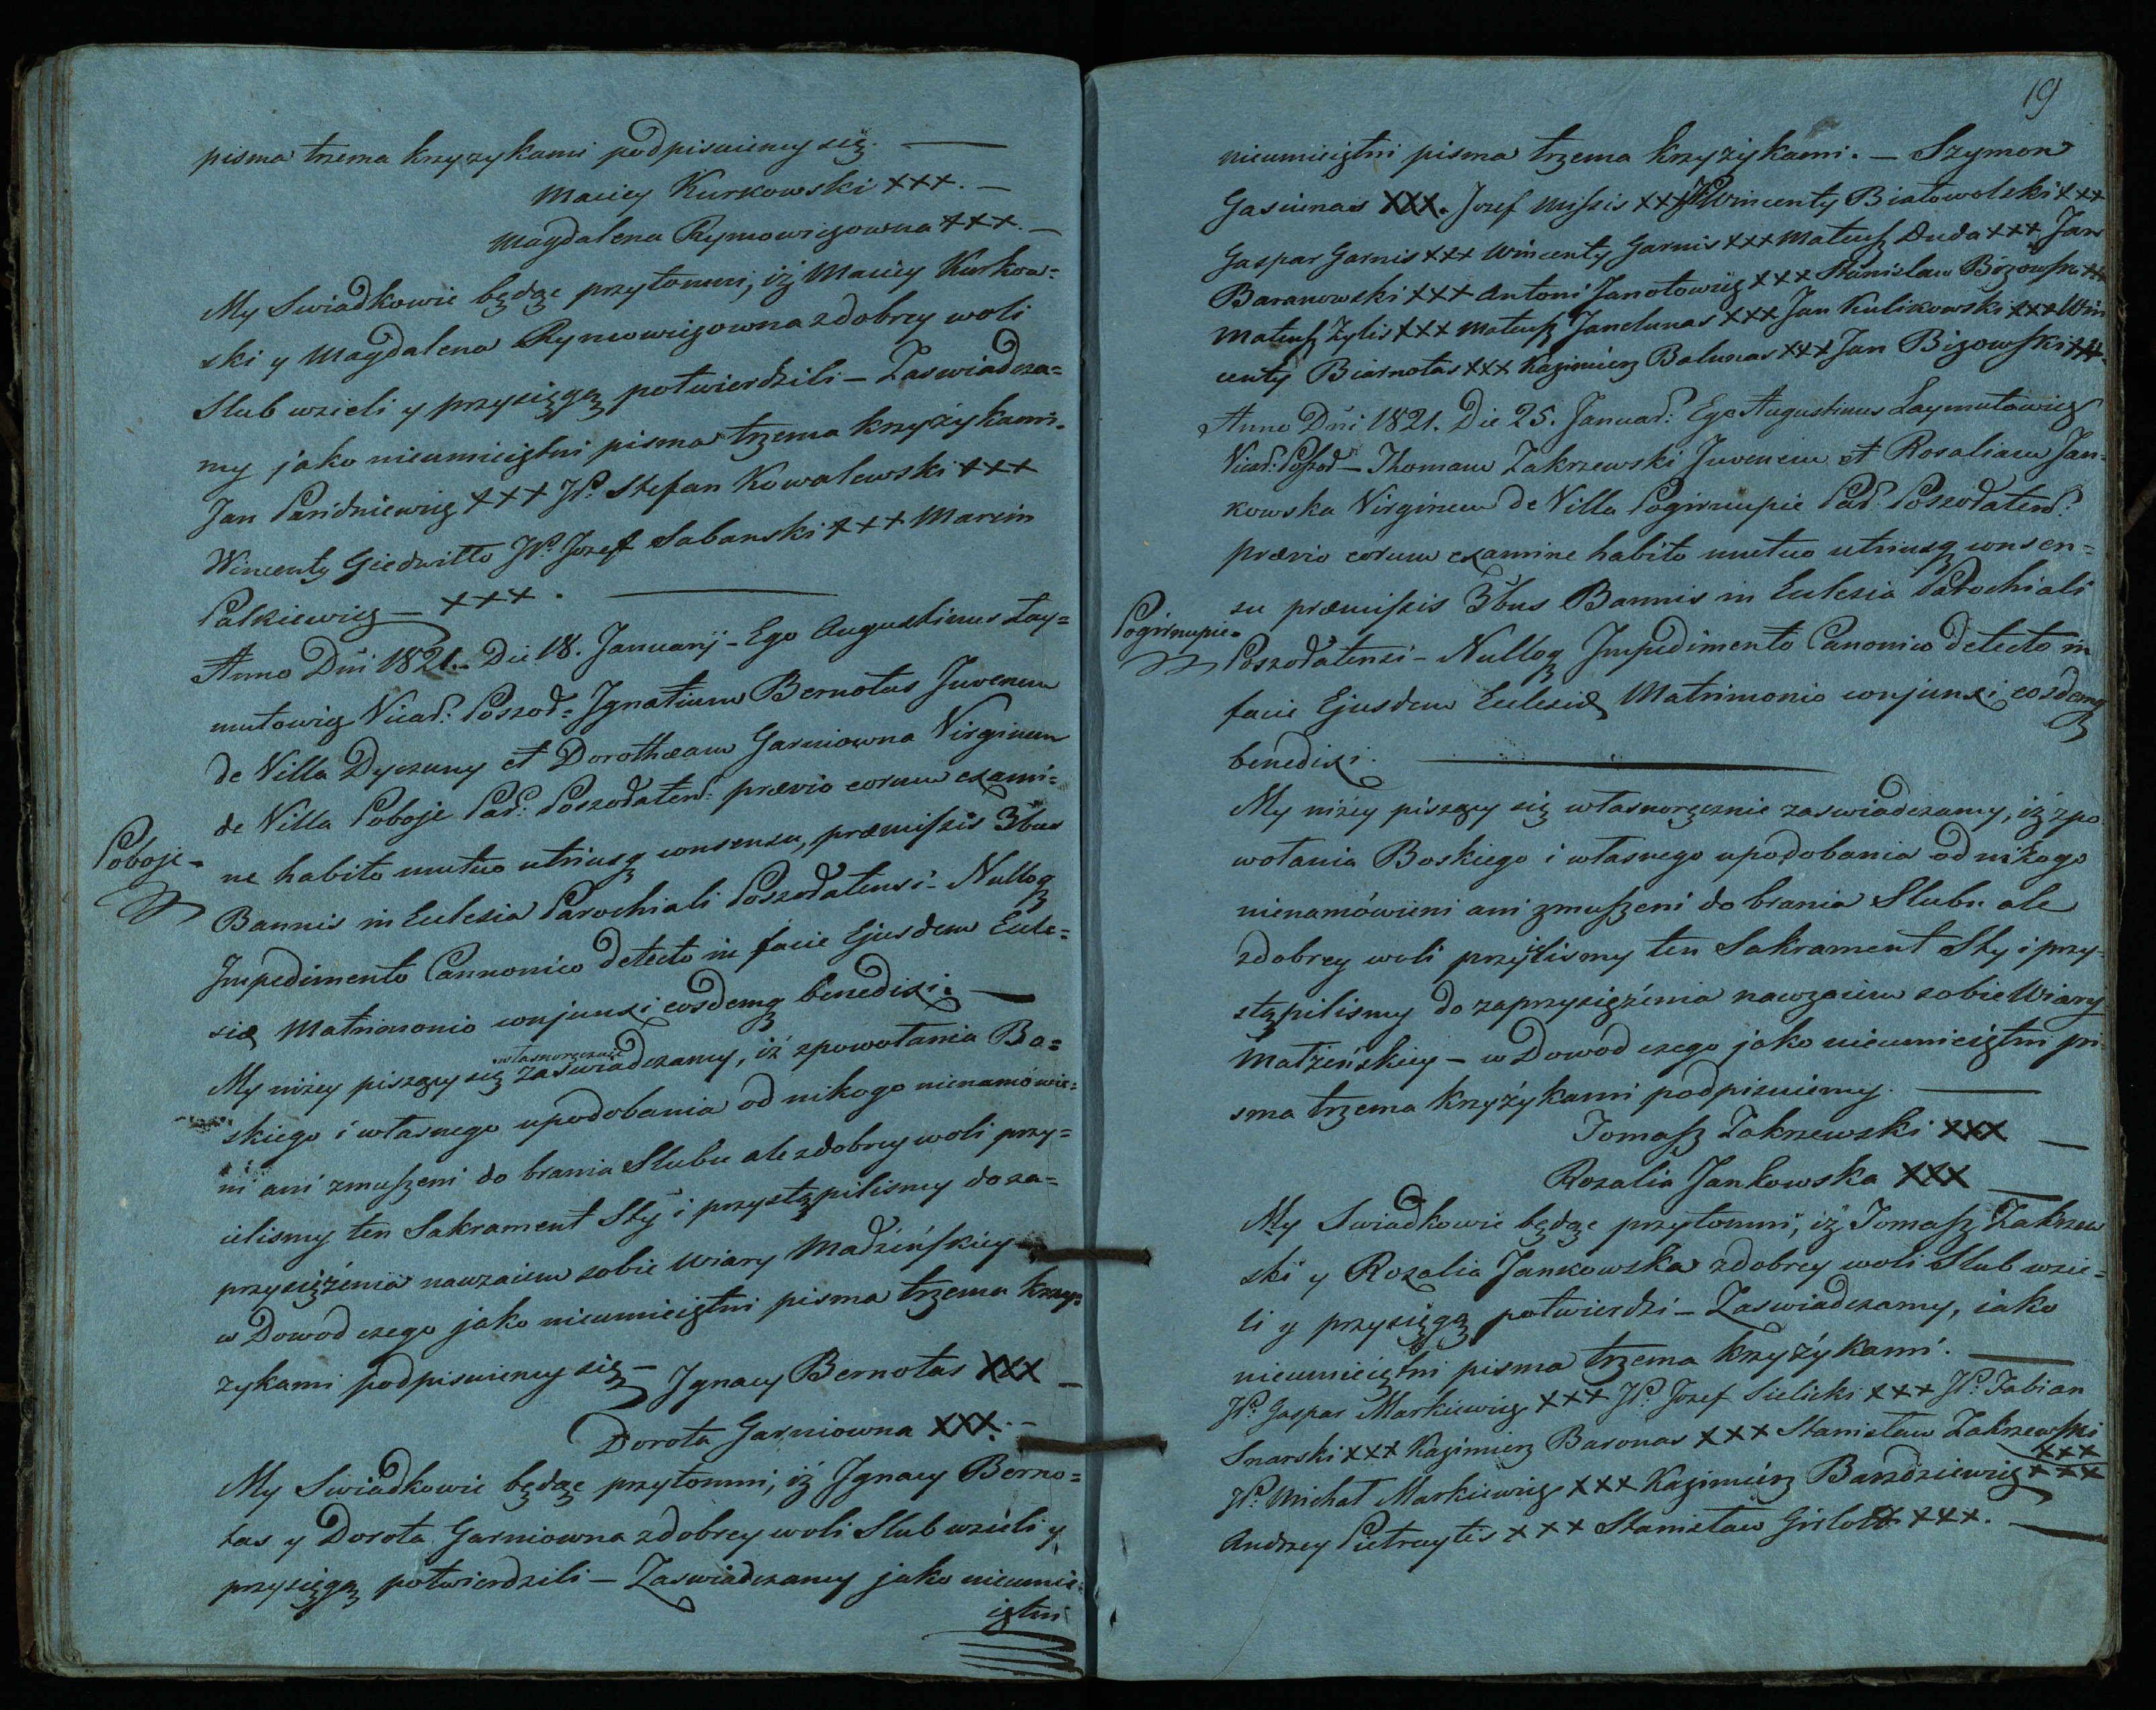 pisma trzema krzyzykami podpisuiemy się. —
Maciey Kurkowski +++. —
Magdalena Rymowiczowna +++. —
My Swiadkowie będąc przytomni, iż Maciey Kurkow=
ski y Magdalena Rymowiczowna zdobrey woli
Slub wzieli y przysięgą potwierdzili — Zaswiadcza=
my jako nieumieiętni pisma trzema krzyżykami.
Jan +++ JP. Stefan Kowalewski +++
Wincenty Giedwiłło JP. Jozef Sabanski +++ Marcin
Palkiewicz — +++. —
Anno Dni 1821. Die 18. Januarij — Ego Augustinus Lay=
mutowicz Vicar: Poszod= Ignatium Bernotas Juvenem
de Villa Dyczuny et Dorotheam Garniowna Virginem
de Villa Poboje Par: Poszodaten: prævio eorum exami=
ne habito mutuo utriusq consensu, præmissis 3bus
Bannis in Eulesia Parochiali Poszodatensi — Nulloq
Impedimento Cannonico detecto in facie Ejusdem Eule=
siæ Matrimonio conjunxi eosdemq benedixi. —
Poboje —
My niżey piszący się własnoręcznie zaswiadczamy, iż zpowołania Bo=
skiego i własnego upodobania od nikogo nienamówie=
ni ani zmuszeni do brania Slubu ale zdobrey woli przy=
ielismy ten Sakrament Sty i przystąpilismy do za=
przysięźenia nawzaiem sobie Wiary Madzeńskiey —
w Dowod czego jako nieumieiętni pisma trzema krzy=
zykami podpisuiemy się — Jgnacy Bernotas XXX —
Dorota Garniowna XXX. —
My Swiadkowie będąc przytomni, iż Jgnacy Berno=
tas y Dorota Garniowna zdobrey woli Slub wzieli y
przysięgą potwierdzili — Zaswiadczamy jako nieumie=
iętni
19
nieumieiętni pisma trzema krzyżykami. — Szymon
Gasiunas XXX. Jozef Missis +++ JP Wincenty Białowolski +++
Gaspar Garnis +++ Wincenty Garnis +++ Mateusz Duda +++ Jan
Baranowski +++ Antoni Janotowicz +++ Stanisław Bizowski +++
Mateusz Zylis +++ Mateusz Janelunas +++ Jan Kulikowski +++ Win
centy Biarnotas +++ Kazimierz Balunas +++ Jan Bizowski +++.
Anno Dni 1821. Die 25. Januar: Ego Augustinus Laymutowicz
Vicar: Poszod — Thomam Zakrzewski Juvenem et Rosaliam Jan=
kowska Virginem de Villa Pogirnupie Par: Poszodaten:
prævio eorum examine habito mutuo utriusq consen=
su præmissis 3bus Bannis in Eulesia Parochiali
Pogirnupie —
Poszodatensi — Nulloq Impedimento Canonico detecto in
facie Ejusdem Eulesiæ Matrimonio conjunxi eosdemq
benedixi. —
My niżey piszący się własnoręcznie zaswiadczamy, iż zpo
wołania Boskiego i własnego upodobania od nikogo
nienamówieni ani zmuszeni do brania Slubu ale
zdobrey woli przyielismy ten Sakrament Sty i przy=
stąpilismy do zaprzysięźenia nawzaiem sobie Wiary
Małżeńskiey — w Dowod czego jako nieumieiętni pi=
sma trzema krzyżykami podpisuiemy. —
Tomasz Zakrzewski XXX —
Rozalia Jankowska XXX —
My Swiadkowie będąc przytomni, iż Tomasz Zakrzew
ski y Rozalia Jankowska zdobrey woli Slub wzie=
li y przysięgą potwierdzi — Zaswiadczamy, iako
nieumieiętni pisma trzema krzyżykami. —
JP. Gaspar Markiewicz +++ JP. Jozef Sielicki +++ JP. Fabian
Snarski +++ Kazimierz Baronas +++ Stanisław Zakrzewski
+++
JP. Michał Markiewicz +++ Kazimierz Barzdziewicz +++
Andrzey Pietraytis +++ Stanisław +++. —